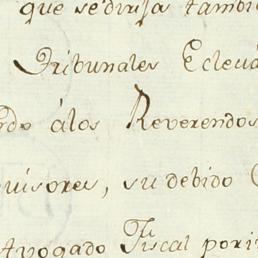 que se dirija tambie
Tribunales Eclecia
rdo álos Reverendos
visores, su debido
Avogado Fiscal pori